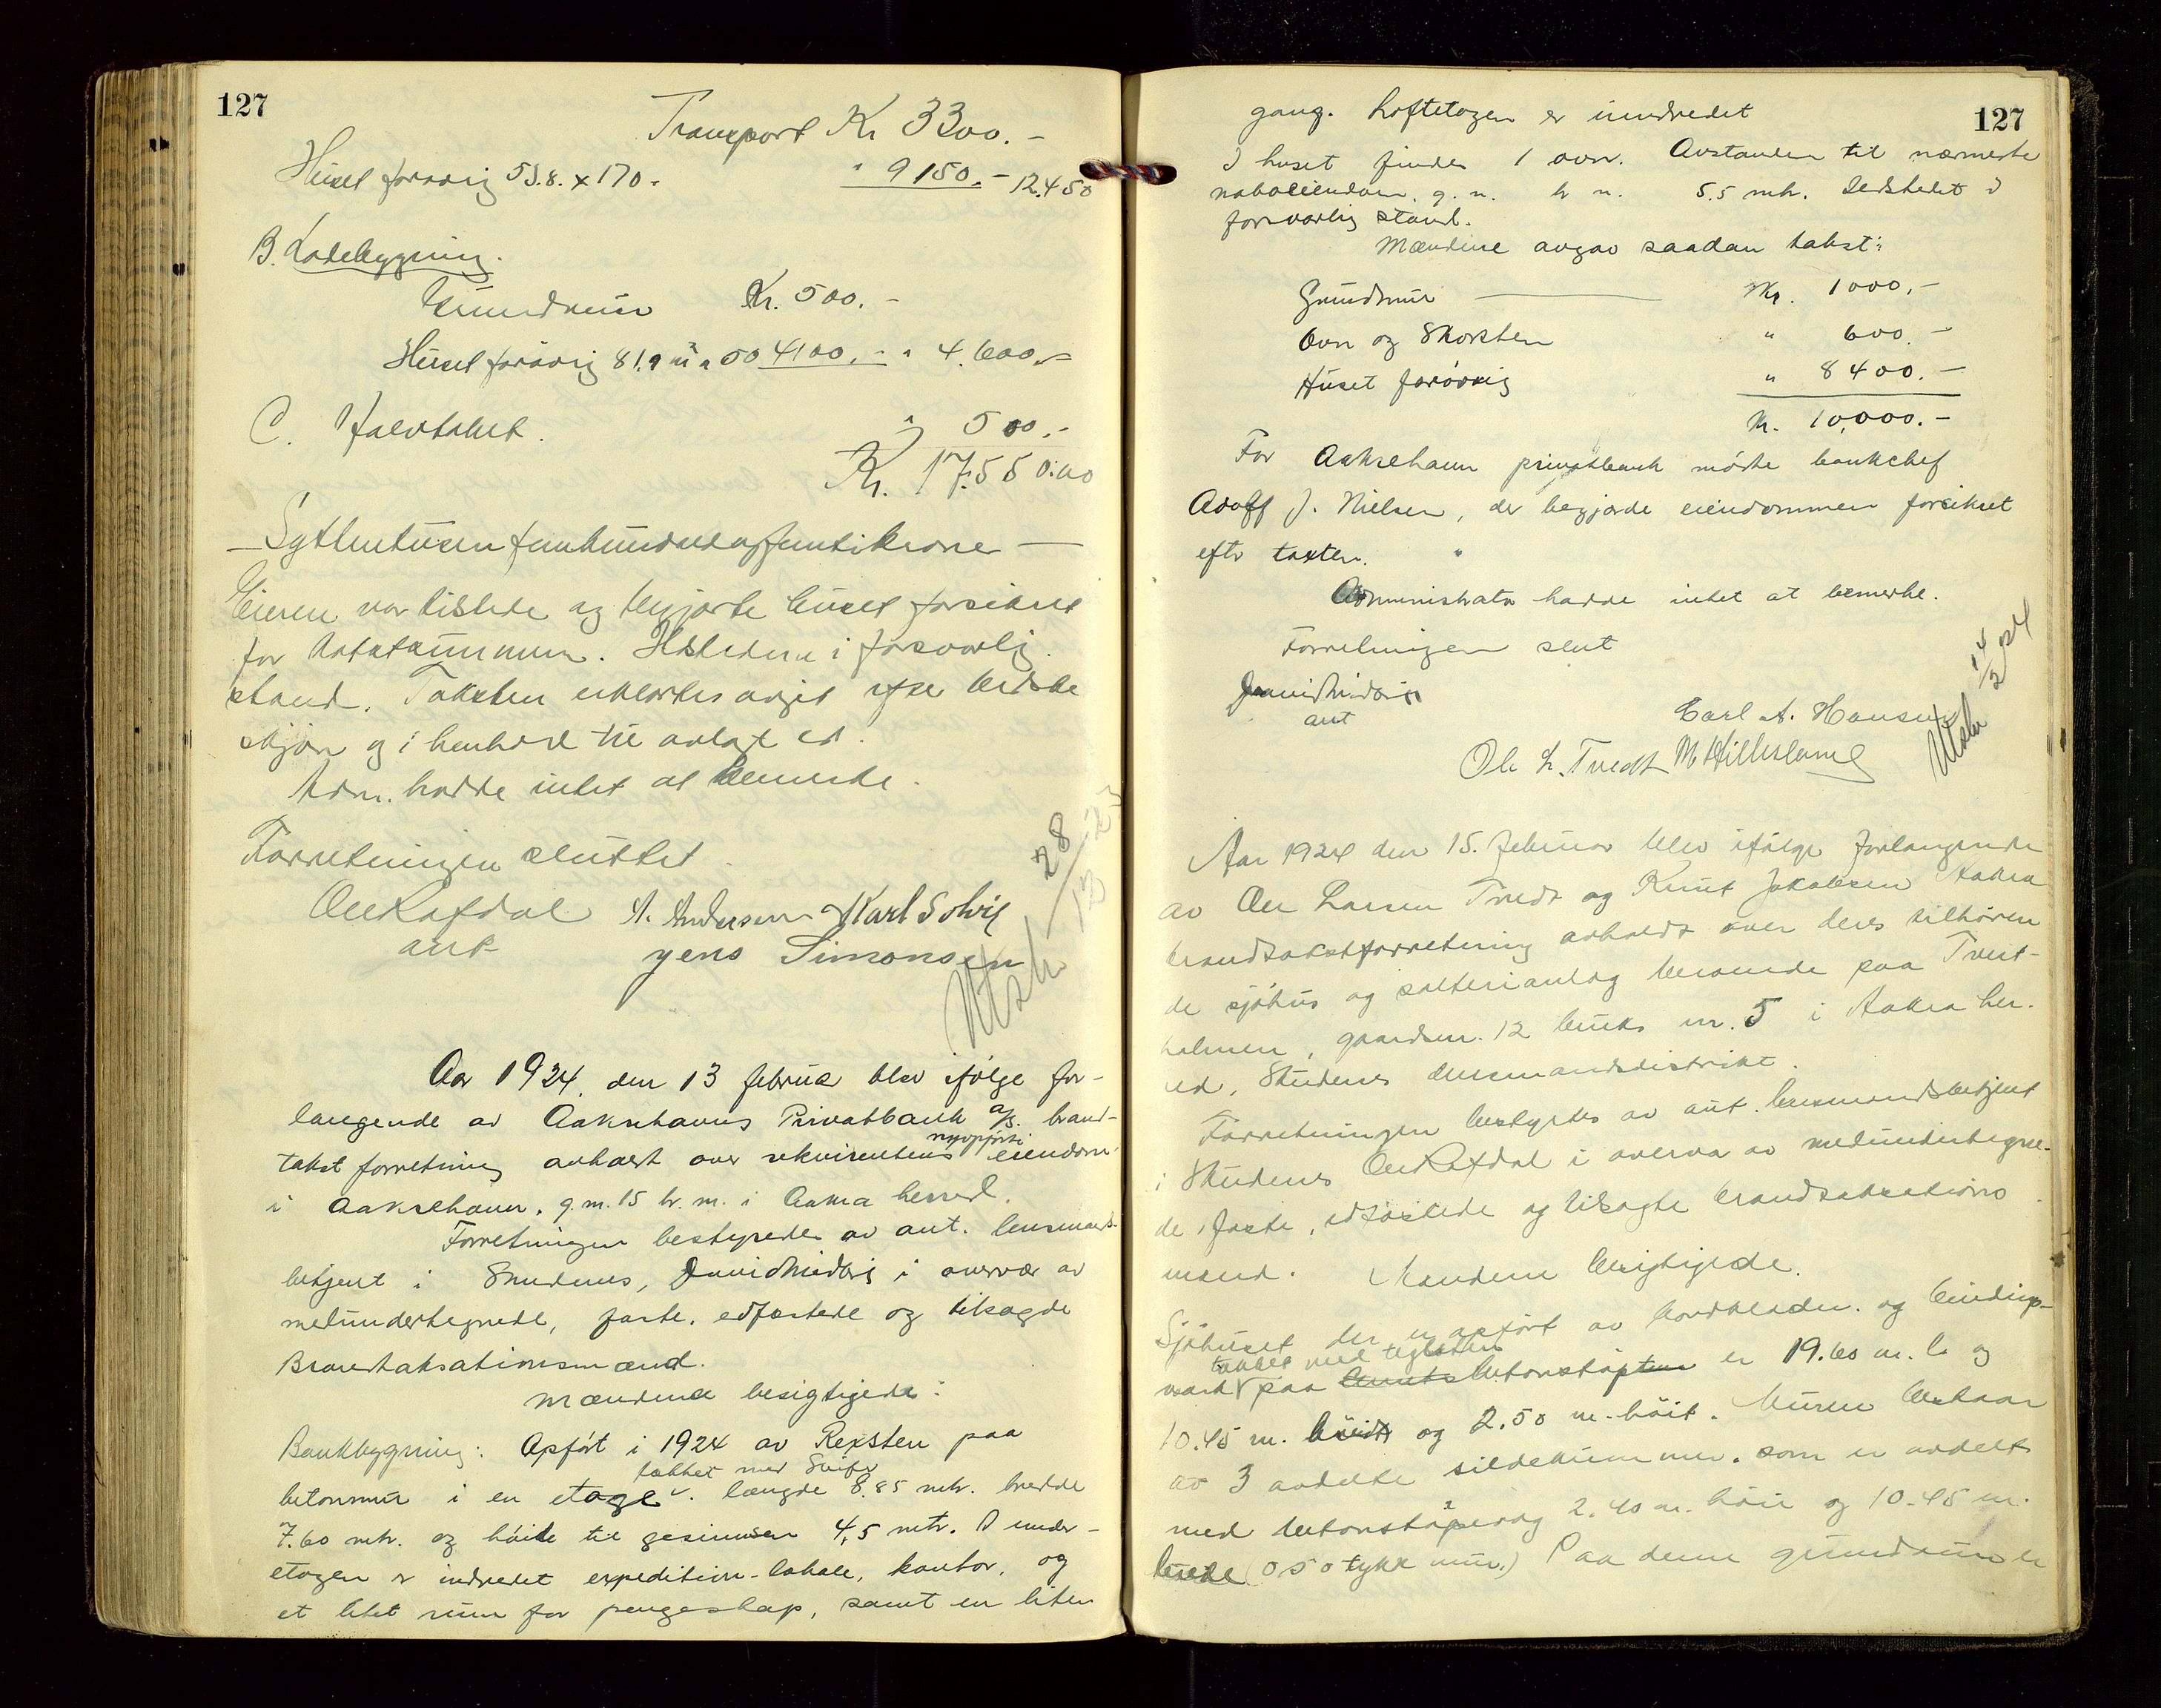 127
Transport Kr 3300.-
Huset forøvrig 53.8. x 170.- " 9150.- 12.450
B. Ladebygning.
Grundmur Kr. 500.-
Huset forøvrig 81.9 m² a 50 4100.- " 4.600.-
C. Halvtaket. " 500.-
Kr. 17.550.00
- Syttentusen femhundredeogfemtikroner -
Eieren var tilstede og begjærte huset forsikret
for takstsummen. Ildstedene i forsvarlig
stand. Taksten erklærtes avgit efter bedste
skjøn og i henhold til avlagt ed.
Adm. hadde intet at bemerke.
Forretningen sluttet.
Ole Rafdal A. Andersen Karl Solvig
aut. Jens Simonsen
Utsk 28/12 23
Aar 1924, den 13 februar blev ifølge for-
langende av Aakrehavns Privatbank a/s. brand-
takst forretning avholdt over rekvirentens nyopførte eiendom
i Aakrehavn, g.nr. 15 br.nr. i Aakra herred.
Forretningen bestyredes av aut. lensmands-
betjent i Skudenes, i overvær av
medundertegnede, faste, edfæstede og tilsagde
Brandtaksationsmænd.
Mændene besigtigede:
Bankbygning: Opført i 1924 av Rexsten paa
betonmur i en etage tækket med Skifer. længde 8.85 mtr. bredde
7.60 mtr. og høide til gesimsen 4,5 mtr. I under-
etagen er indredet expedition-lokale, kontor, og
et litet rum for pengeskap, samt en liten
127
gang. Loftetagen er uindredet
I huset findes 1 ovn. Avstanden til nærmeste
naboeiendom, g.n. b n. 5.5 mtr. Ildstedet i
forsvarlig stand.
Mændene avgav saadan takst:
Grundmur Kr. 1000.-
Ovn og Skorsten " 600.-
Huset forøvrig " 8400.-
Kr. 10,000.-
For Aakrehavn privatbank møtte bankchef
Adolf J. Nielsen, der begjærde eiendommen forsikret
efter taxten.
Administrator hadde intet at bemerke.
Forretningen slut
aut Carl A. Hansen
Ole L. Tvedt
Utsk 14/2 24
Aar 1924 den 15. februar blev ifølge forlangende
av Ole Larsen Tvedt og Knut Jakobsen Aakra
brandtakstforretning avholdt over deres tilhøren
de sjøhus og salterianlæg beroende paa Tveit-
holmen, gaardsnr. 12 bruks nr. 5 i Aakra her-
red, Skudenes lensmandsdistrikt.
Forretningen bestyrtes av aut. lensmandsbetjent
i Skudenes Ole Rafdal i overvær av medundertegne-
de, faste, edfæstede og tilsagte brandtaksations
mænd. Mændene besigtigede.
Sjøhuset der er opført av bordklæder. og bindings-
verk tækket med teglsten paa betonstøpt er 19.60 m. l. og
10.45 m. bredt og 2.50 m. høit. Muren bestaar
av 3 avdelte sildekummer. som er avdelt
med betonstøpning 2.40 m. høie og 10.45 m.
brede (0 50 tykk mur.) Paa denne grundmur er